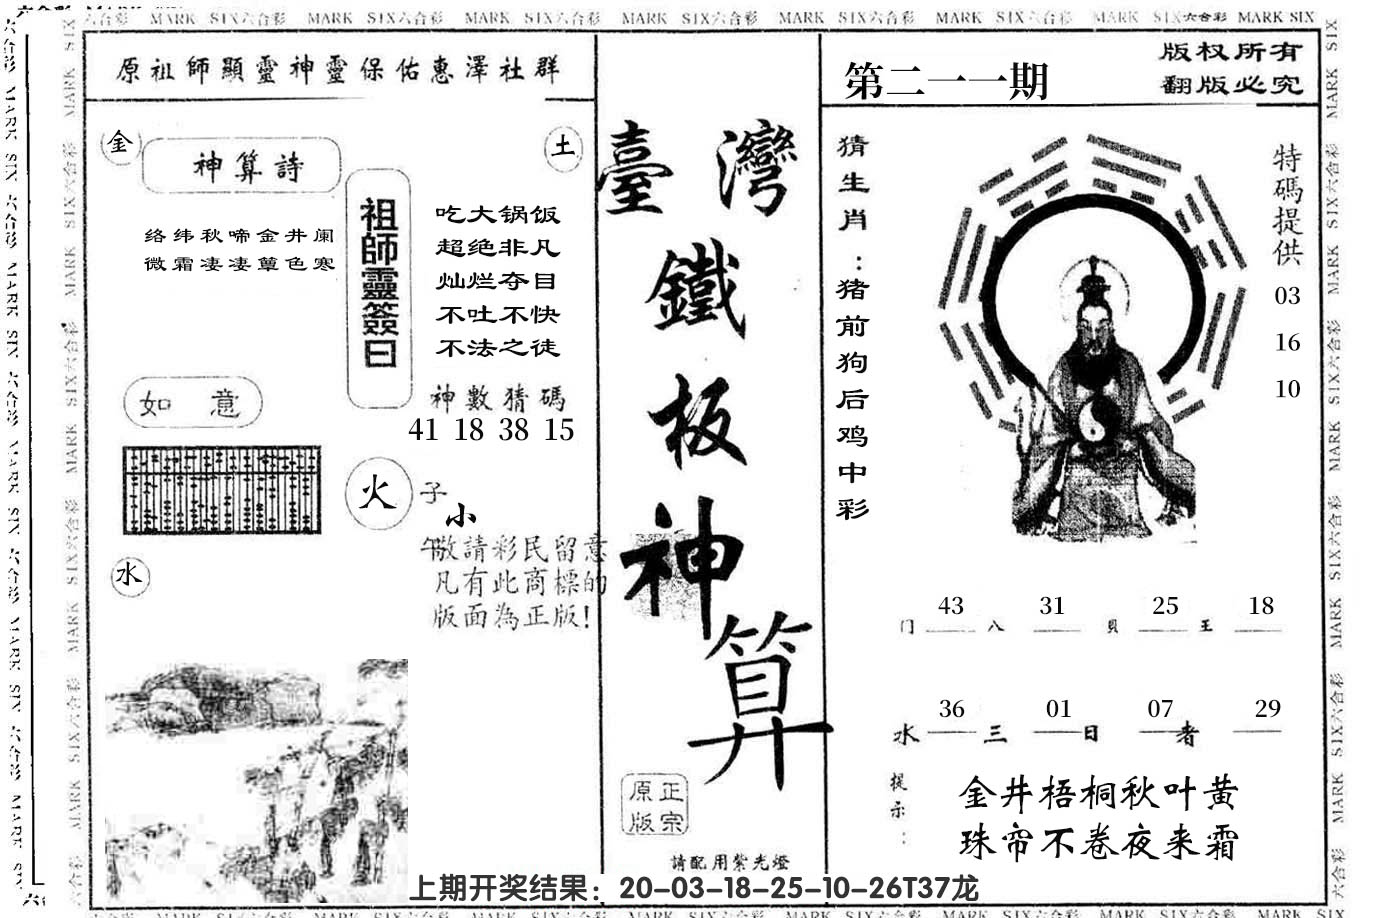 MARK SIX六合彩 MARK SIX六合彩 MARK SIX六合彩 MARK SIX六合彩 MARK SIX六合彩 MARK SIX六合彩 MARK SIX六合彩 MARK SIX
原祖師顯靈神靈保佑惠澤社群
金
神算詩
土
络纬秋啼金井阑
微霜凄凄簟色寒
祖師靈簽曰
吃大锅饭
超绝非凡
灿烂夺目
不吐不快
不法之徒
神數猜碼
41 18 38 15
如意
火
子
小
午
敬請彩民留意
凡有此商標的
版面為正版!
水
臺灣
鐵
板
神
算
正宗
原版
請配用紫光燈
第二一一期
版权所有
翻版必究
猜生肖:猪前狗后鸡中彩
特碼提供
03
16
10
43 31 25 18
门 八 貝 王
36 01 07 29
水 三 日 者
提示:
金井梧桐秋叶黄
珠帘不卷夜来霜
上期开奖结果：20-03-18-25-10-26T37龙